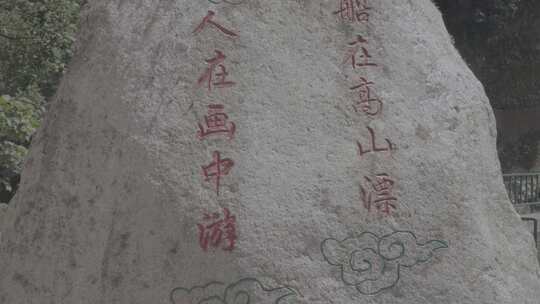 船在高山漂
人在画中游